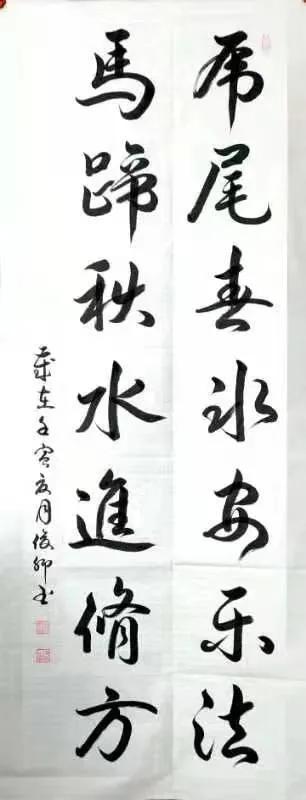 虎尾春冰安乐法
馬蹄秋水進脩方
歲在壬寅夏月俊卿书